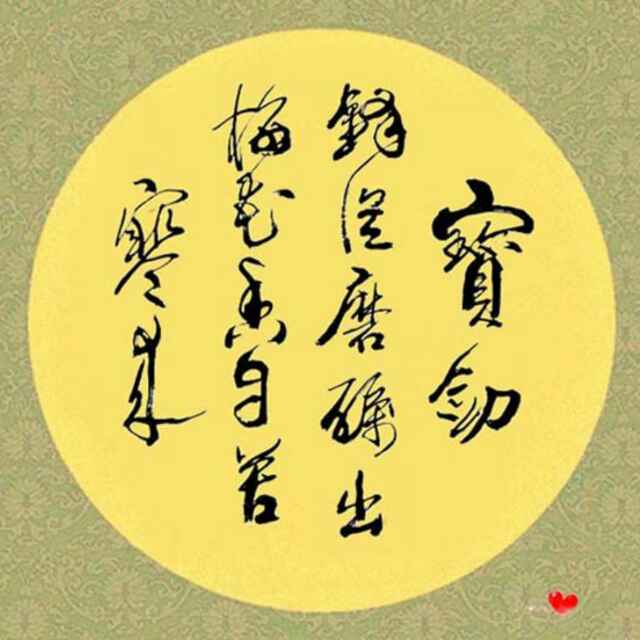 寶劍
鋒從磨礪出
梅花香自苦
寒來